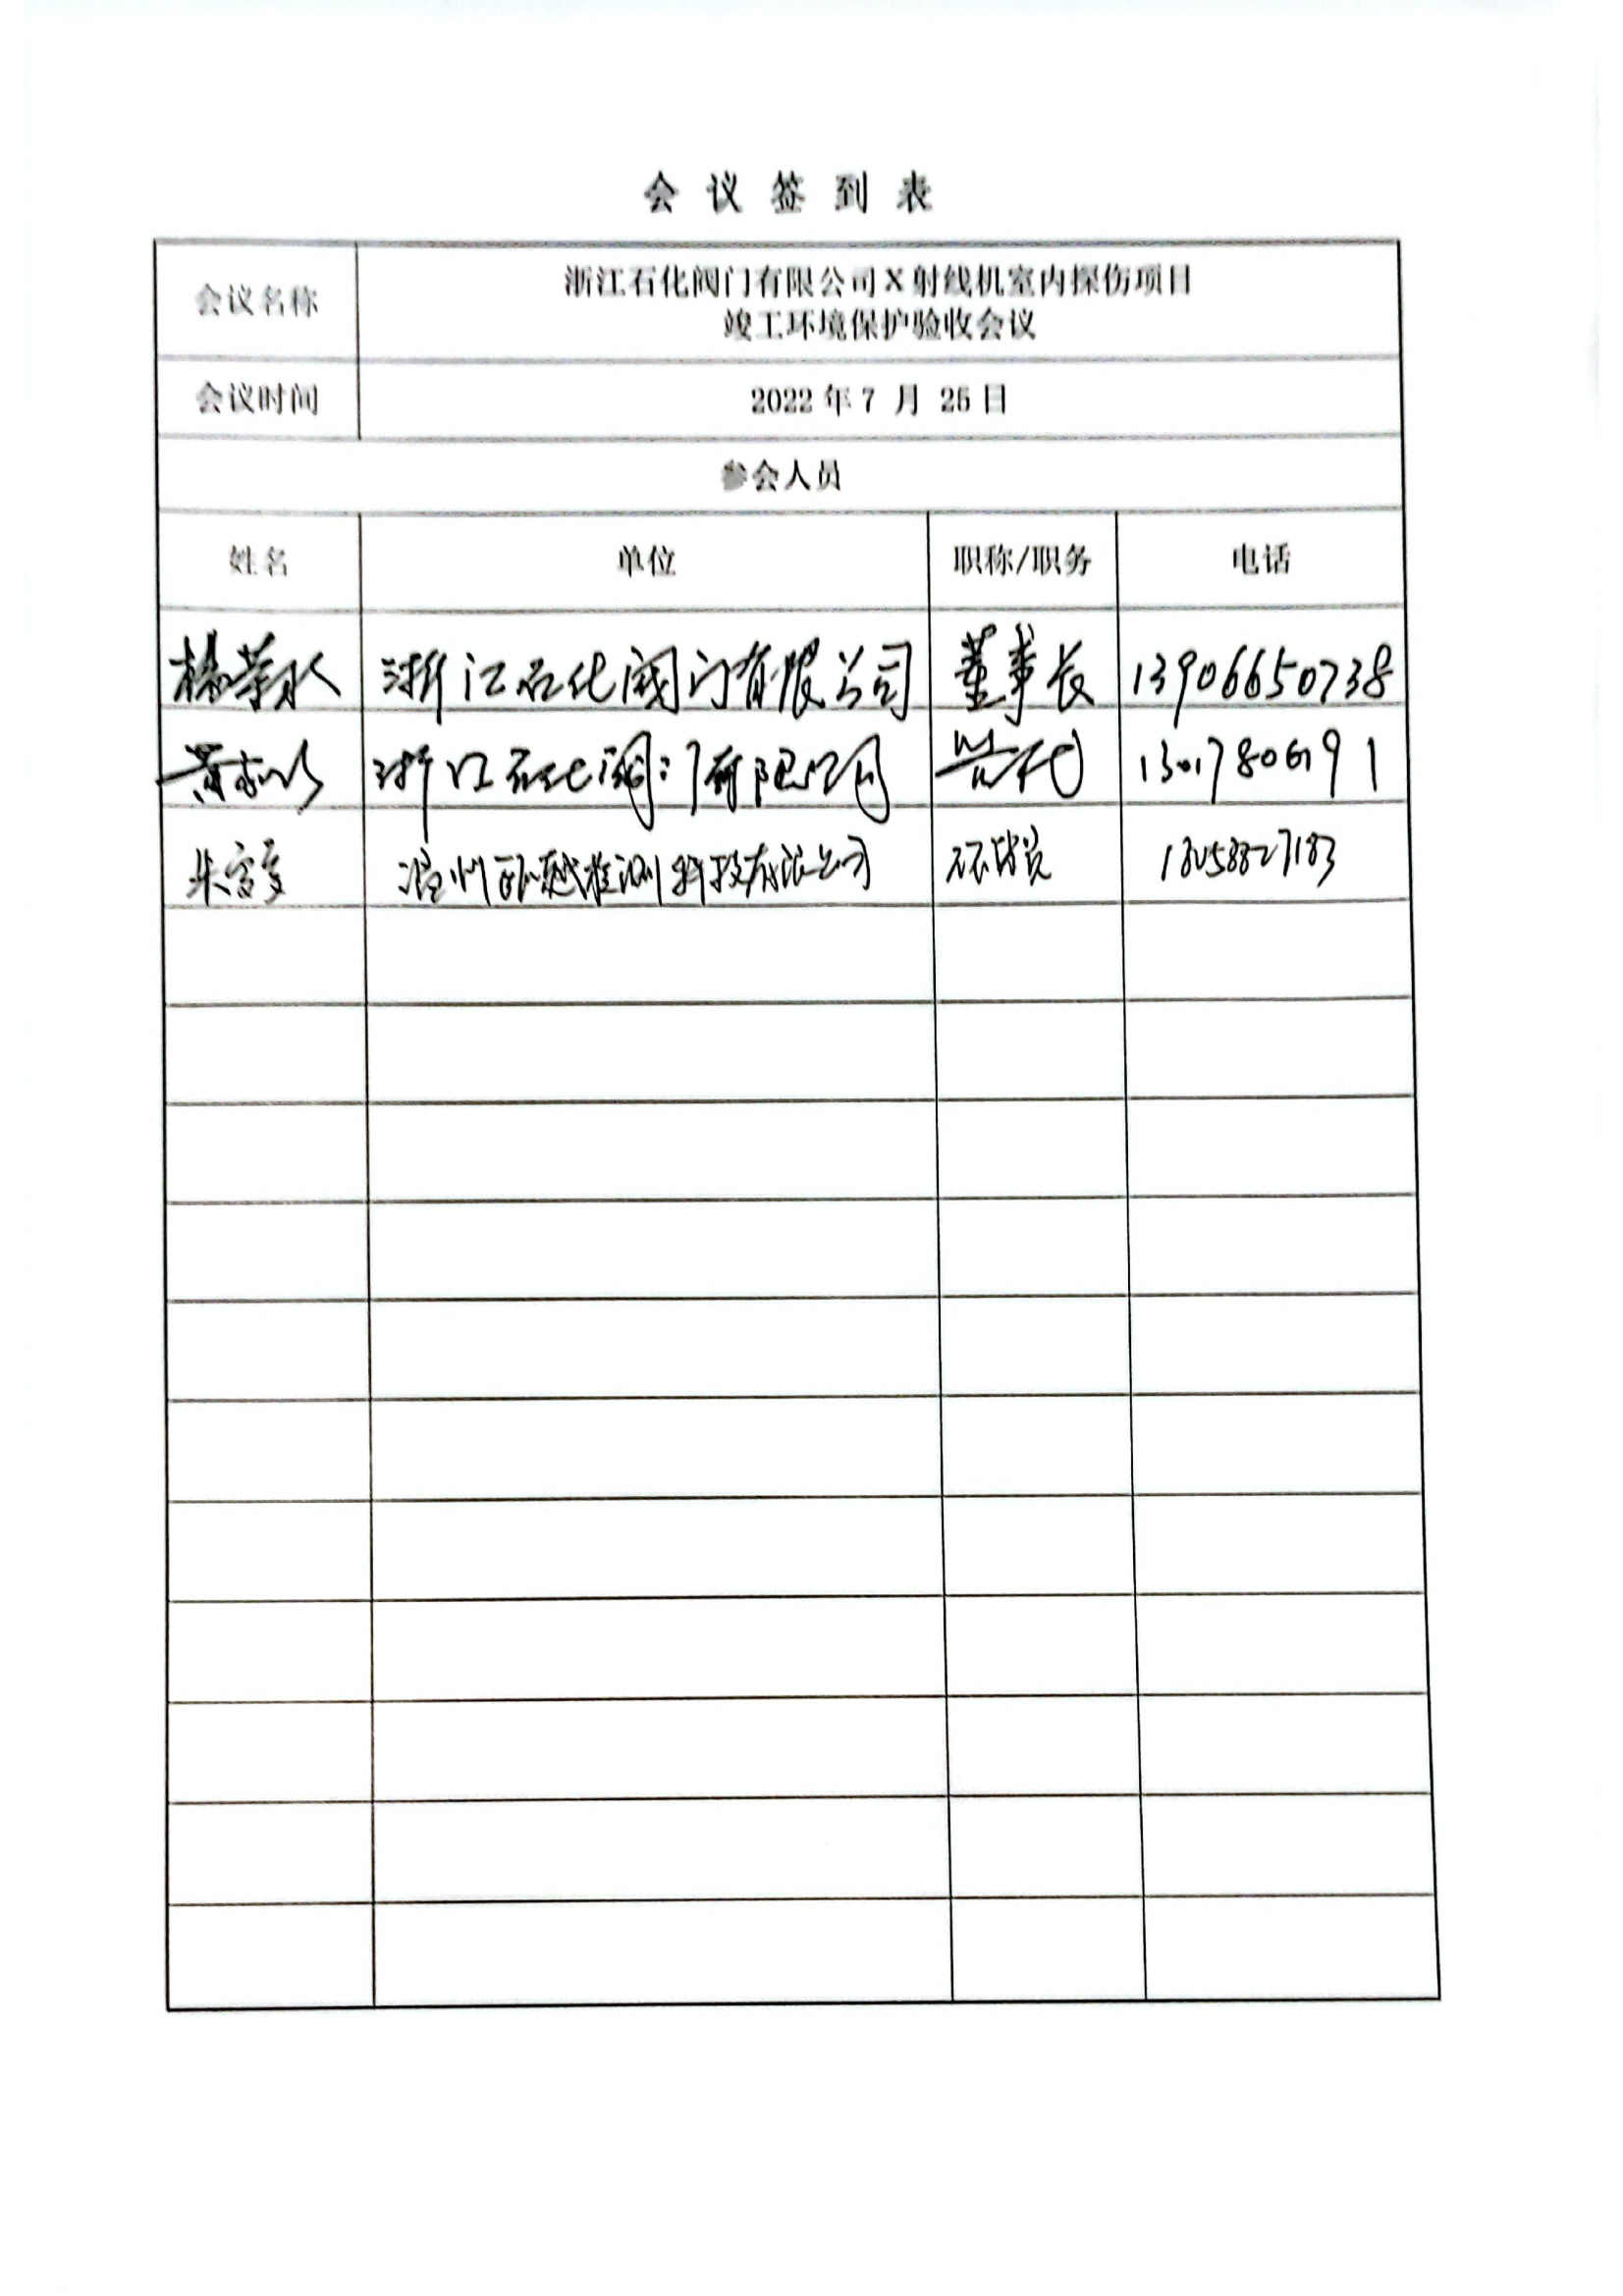 会议签到表
会议名称
浙江石化阀门有限公司X射线机室内探伤项目
竣工环境保护验收会议
会议时间
2022年7月25日
参会人员
姓名 单位 职称/职务 电话
杨荣水 浙江石化阀门有限公司 董事长 13906650738
浙江石化阀门有限公司
温州 检测科技有限公司 18058827183